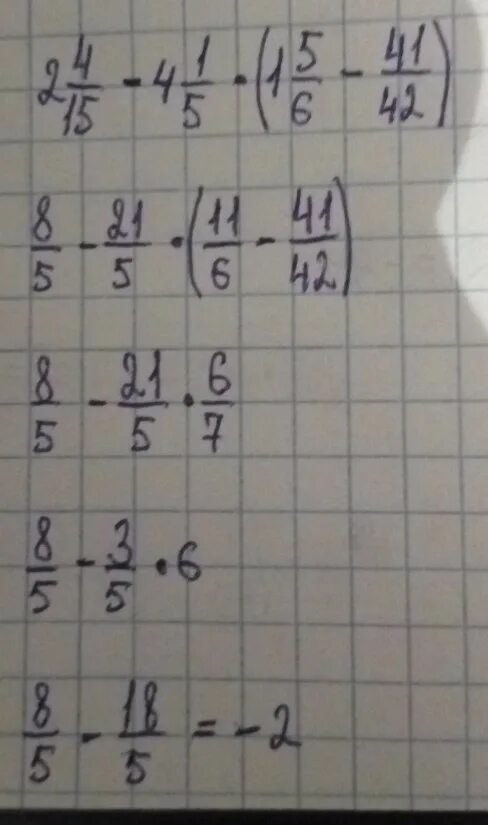 2 4/15 - 4 1/5 · (1 5/6 - 41/42)
8/5 - 21/5 · (11/6 - 41/42)
8/5 - 21/5 · 6/7
8/5 - 3/5 · 6
8/5 - 18/5 = -2